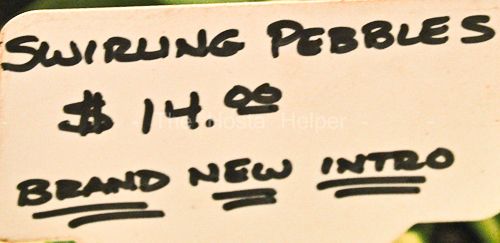 SWIRLING PEBBLES
$ 14.00
The Hosta Helper
BRAND NEW INTRO